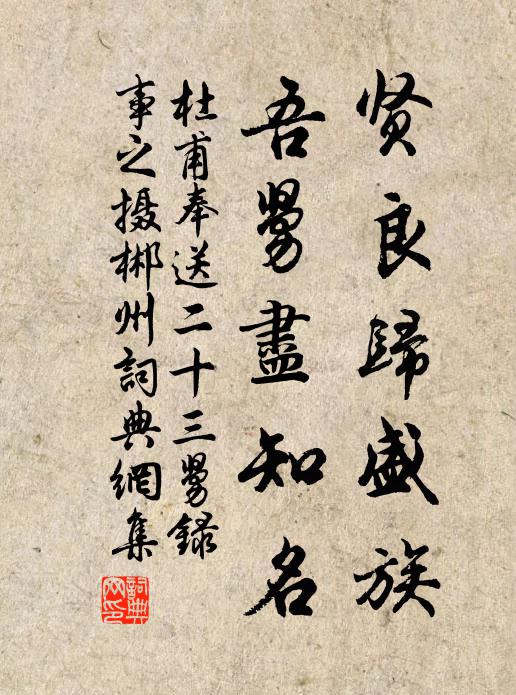 贤良歸盛族
吾舅盡知名
杜甫奉送二十三舅録
事之摄郴州詞典網集
詞典
网印